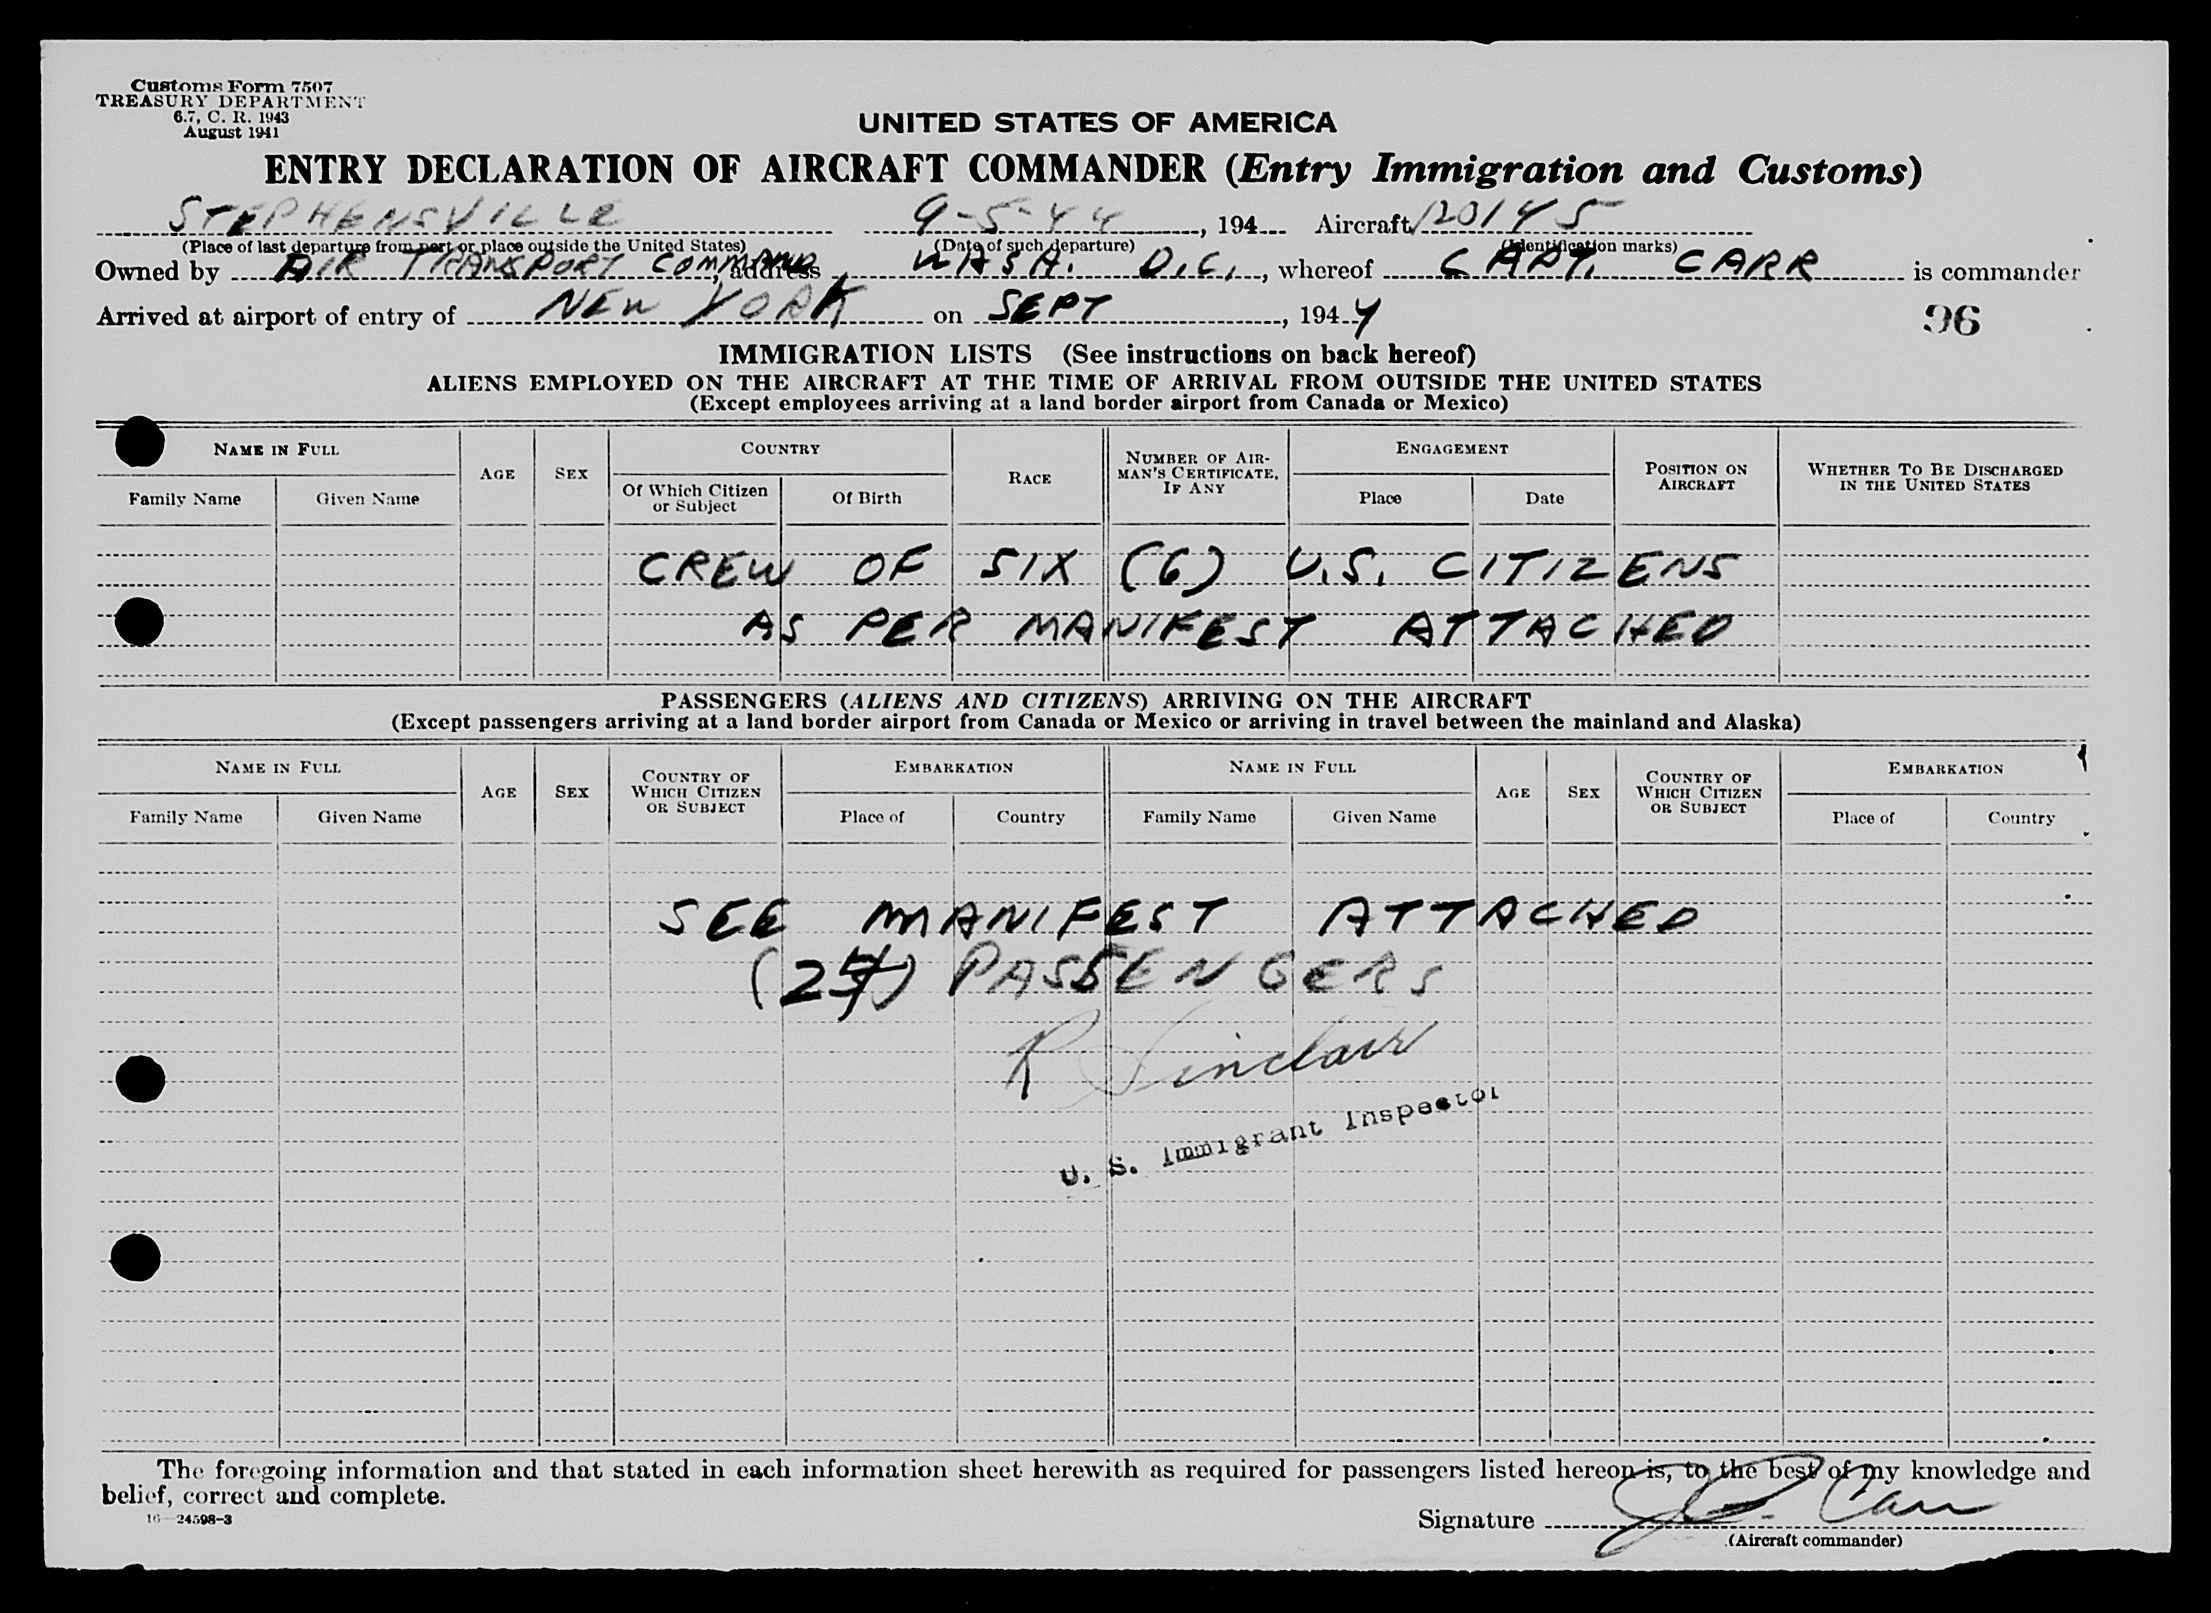 Customs Form 7507
TREASURY DEPARTMENT
6.7, C. R. 1943
August 1941
UNITED STATES OF AMERICA
ENTRY DECLARATION OF AIRCRAFT COMMANDER (Entry Immigration and Customs)
STEPHENSVILLE 9-5-44, 194 Aircraft 120145
(Place of last departure from port or place outside the United States) (Date of such departure) (Identification marks)
Owned by AIR TRANSPORT COMMAND, address WASH. D.C., whereof CAPT. CARR is commander
Arrived at airport of entry of NEW YORK on SEPT, 1944
96
IMMIGRATION LISTS (See instructions on back hereof)
ALIENS EMPLOYED ON THE AIRCRAFT AT THE TIME OF ARRIVAL FROM OUTSIDE THE UNITED STATES
(Except employees arriving at a land border airport from Canada or Mexico)
NAME IN FULL AGE SEX COUNTRY RACE NUMBER OF AIRMAN'S CERTIFICATE, IF ANY ENGAGEMENT POSITION ON AIRCRAFT WHETHER TO BE DISCHARGED IN THE UNITED STATES
Family Name Given Name Of Which Citizen or Subject Of Birth Place Date
CREW OF SIX (6) U.S. CITIZENS
AS PER MANIFEST ATTACHED
PASSENGERS (ALIENS AND CITIZENS) ARRIVING ON THE AIRCRAFT
(Except passengers arriving at a land border airport from Canada or Mexico or arriving in travel between the mainland and Alaska)
NAME IN FULL AGE SEX COUNTRY OF WHICH CITIZEN OR SUBJECT EMBARKATION NAME IN FULL AGE SEX COUNTRY OF WHICH CITIZEN OR SUBJECT EMBARKATION
Family Name Given Name Place of Country Family Name Given Name Place of Country
SEE MANIFEST ATTACHED
PASSENGERS
R Sinclair
U. S. Immigrant Inspector
The foregoing information and that stated in each information sheet herewith as required for passengers listed hereon is, to the best of my knowledge and
belief, correct and complete.
16—24598-3
Signature Carr
(Aircraft commander)